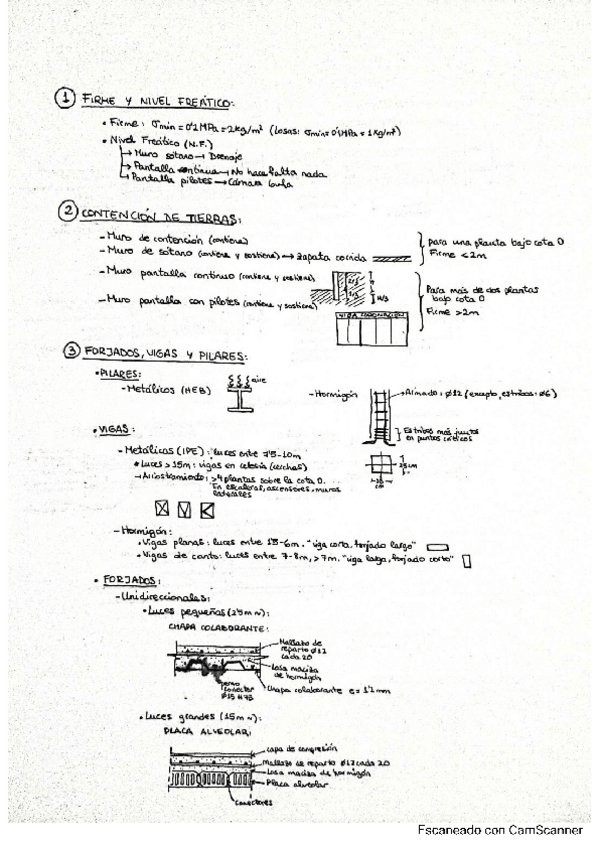 ① FIRME Y NIVEL FREÁTICO:
• Firme: σmin = 0'1 MPa = 2kg/m² (Losas: σmin = 0'1MPa = 1kg/m²)
• Nivel Freático (N.F.)
→ Muro sótano → Drenaje
→ Pantalla continua → No hace falta nada
→ Pantalla pilotes → Cámara
② CONTENCIÓN DE TIERRAS:
- Muro de contención (contiene)
- Muro de sótano (contiene y sostiene) → zapata corrida
para una planta bajo cota 0
Firme < 2m
- Muro pantalla continuo (contiene y sostiene)
- Muro pantalla con pilotes (contiene y sostiene)
2/3
H/3
Para más de dos plantas
bajo cota 0
Firme > 2m
VIGA CORONACIÓN
③ FORJADOS, VIGAS Y PILARES:
• PILARES:
- Metálicos (HEB)
aire
- Hormigón
→ Armado: ø12 (excepto, estribos: ø6)
Estribos más juntos
en puntos críticos
25cm
cm
• VIGAS:
- Metálicas (IPE): luces entre 7'5-10m
* Luces > 15m: vigas en celosía (cerchas)
→ Arriostramiento: > 4 plantas sobre la cota 0.
En escaleras, ascensores, muros
laterales
- Hormigón:
• Vigas planas: luces entre 1'5-6m. "viga corta, forjado largo"
• Vigas de canto: luces entre 7-8m, > 7m. "viga larga, forjado corto"
• FORJADOS:
- Unidireccionales:
• Luces pequeñas (2'5m ~):
CHAPA COLABORANTE:
Mallazo de
reparto ø12
cada 20
Losa maciza
de hormigón
Chapa colaborante e = 1'2mm
conector
• Luces grandes (15m ~):
PLACA ALVEOLAR:
capa de compresión
Mallazo de reparto ø12 cada 20
Losa maciza de hormigón
Placa alveolar
conectores
Escaneado con CamScanner